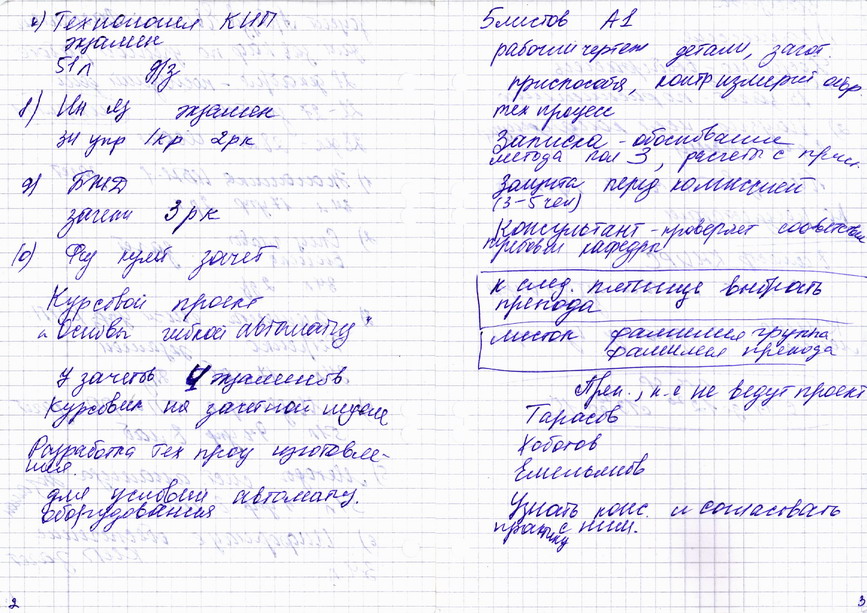 Технология КИП
экзамен
51л д/з
8) Ин яз экзамен
34 упр 1кр 2рк
9) БЖД
зачет 3рк
10) Физ культ зачет
Курсовой проект
"Основы гибкой автоматиз"
7 зачетов 4 экзаменов
Курсовик на зачетной неделе
Разработка тех проц изготовле-
ния.
для условий автоматиз.
оборудования
2
5 листов А1
рабочий чертеж детали, загот.
приспособл, контр измерит
тех процесс
Записка - обоснование
метода пол З, расчеты с
Защита перед комиссией
(3-5 чел)
Консультант - проверяет соответствие
кафедры
к след. пятнице выбрать
препода
листок фамилия группа
фамилия препода
Преп., к-е не ведут проект
Тарасов
Хоботов
Емельянов
Узнать конс. и согласовать
практику с ним.
3